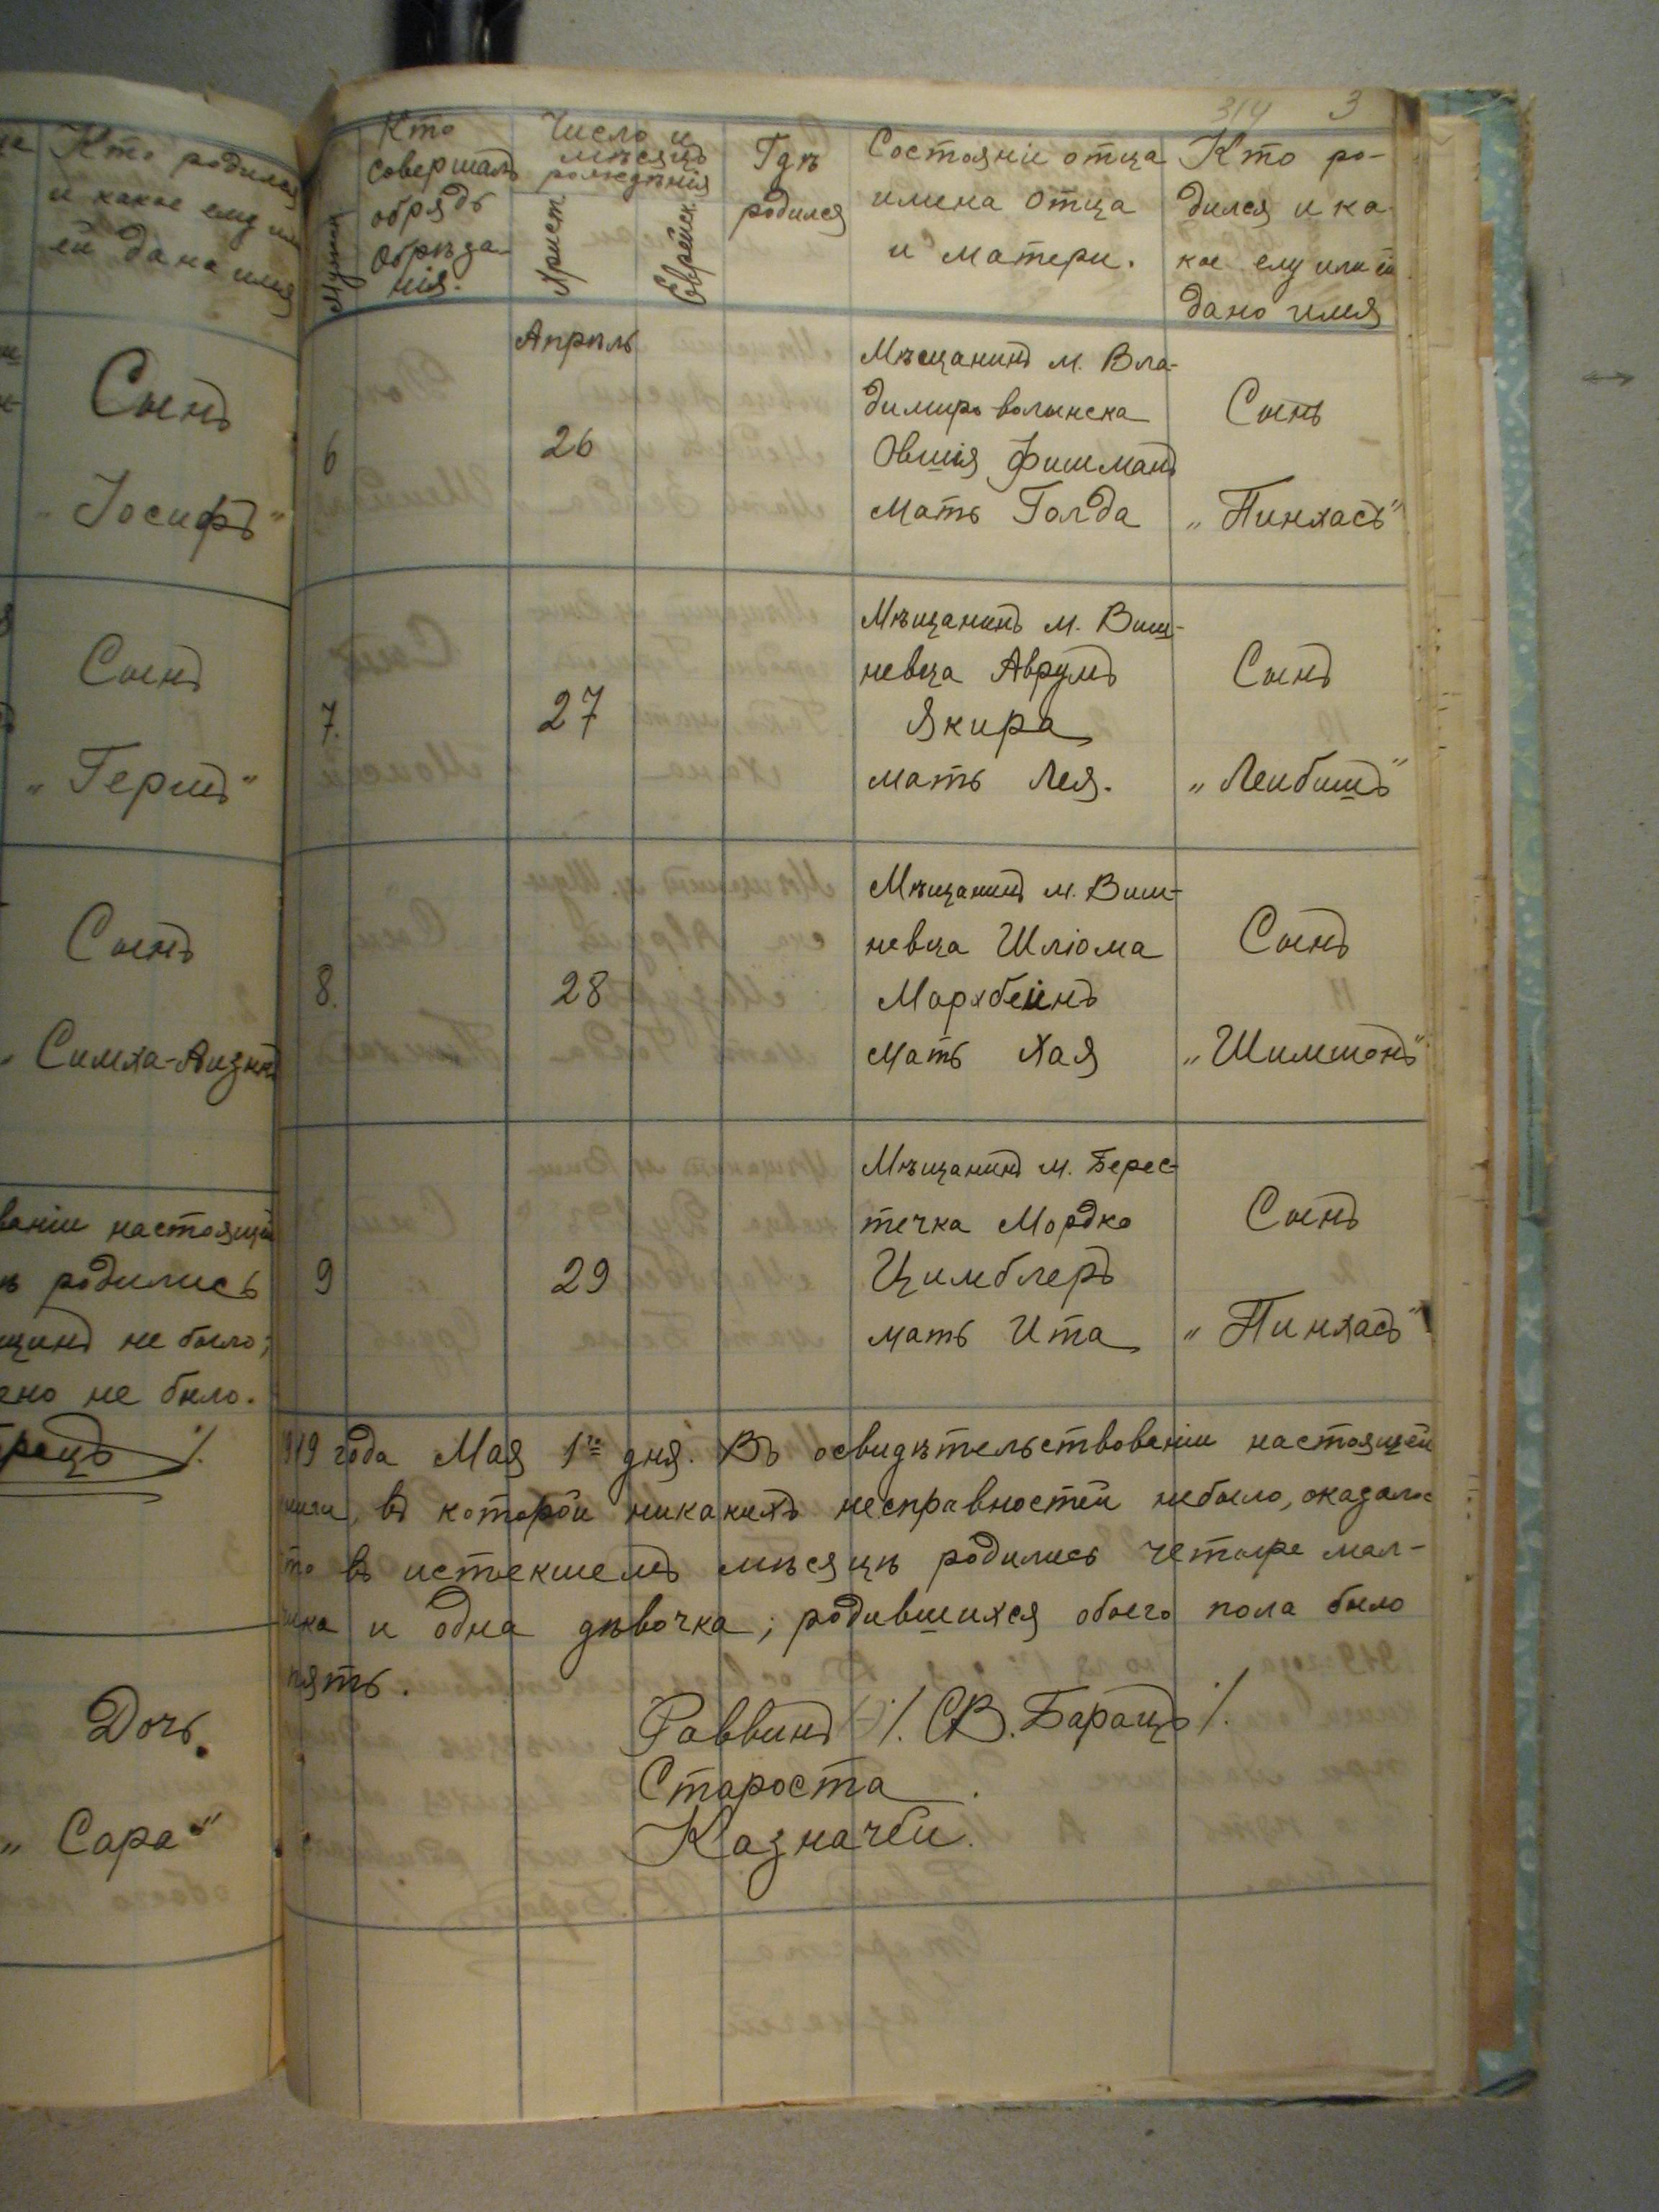 Кто родился
и какое ему или
ей дано имя
Сынъ
„Іосифъ“
Сынъ
„Гершъ“
Сынъ
„Симха-Айзикъ
настоящей
родились
не было;
не было.
Дочь.
„Сара“
314 3
Мужчин
Кто
совершалъ
обрядъ
обрѣза-
нія.
Число и
мѣсяцъ
рожденія
Христ
Еврейск.
Гдѣ
родился
Состояніе отца
имена отца
и матери.
Кто ро-
дился и ка-
кое ему или ей
дано имя
Апрѣль
6
26
Мѣщанинъ м. Вла-
димиръ-волынска
Овшія Фишманъ
мать Голда
Сынъ
„Пинхасъ“
7.
27
Мѣщанинъ м. Виш-
невца Аврумъ
Якира
мать Лея.
Сынъ
„Лейбишъ“
8.
28
Мѣщанинъ м. Виш-
невца Шліома
Мархбейнъ
мать Хая
Сынъ
„Шимшонъ“
9
29
Мѣщанинъ м. Берес-
течка Мордко
Цимблеръ
мать Ита
Сынъ
„Пинхасъ“
919 года Мая 1го дня. Въ освидѣтельствованіи настоящей
книги, въ которой никакихъ несправностей небыло, оказалос
что въ истекшемъ мѣсяцѣ родились четыре мал-
чика и одна дѣвочка; родившихся обоего пола было
пять.
Раввинъ /. СВ. Барацъ /.
Староста .
Казначей.